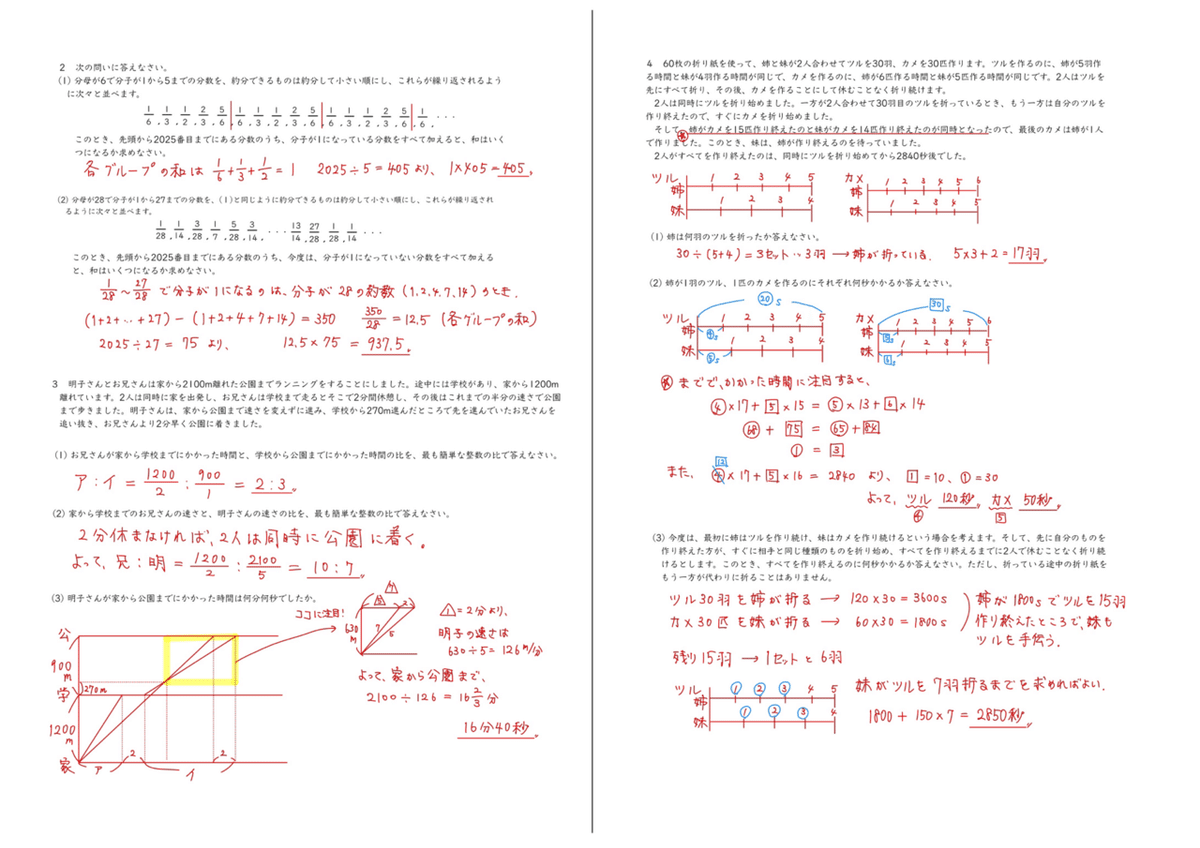 2 次の問いに答えなさい。
(1) 分母が6で分子が1から5までの分数を、約分できるものは約分して小さい順にし、これらが繰り返されるよう
に次々と並べます。
1/6 , 1/3 , 1/2 , 2/3 , 5/6 , 1/6 , 1/3 , 1/2 , 2/3 , 5/6 , 1/6 , 1/3 , 1/2 , 2/3 , 5/6 , 1/6 , ・・・
このとき、先頭から2025番目までにある分数のうち、分子が1になっている分数をすべて加えると、和はいく
つになるか求めなさい。
各グループの和は 1/6+1/3+1/2=1 2025÷5=405より、 1×405=405。
(2) 分母が28で分子が1から27までの分数を、(1)と同じように約分できるものは約分して小さい順にし、これらが繰り返され
るように次々と並べます。
1/28 , 1/14 , 3/28 , 1/7 , 5/28 , 3/14 , ・・・ 13/14 , 27/28 , 1/28 , 1/14 ・・・
このとき、先頭から2025番目までにある分数のうち、今度は、分子が1になっていない分数をすべて加える
と、和はいくつになるか求めなさい。
1/28〜27/28 で分子が1になるのは、分子が28の約数(1,2,4,7,14)のとき.
(1+2+‥+27)−(1+2+4+7+14)=350 350/28=12.5 (各グループの和)
2025÷27=75 より、 12.5×75=937.5。
3 明子さんとお兄さんは家から2100m離れた公園までランニングをすることにしました。途中には学校があり、家から1200m
離れています。2人は同時に家を出発し、お兄さんは学校まで走るとそこで2分間休憩し、その後はこれまでの半分の速さで公園
まで歩きました。明子さんは、家から公園まで速さを変えずに進み、学校から270m進んだところで先を進んでいたお兄さんを
追い抜き、お兄さんより2分早く公園に着きました。
(1) お兄さんが家から学校までにかかった時間と、学校から公園までにかかった時間の比を、最も簡単な整数の比で答えなさい。
ア:イ = 1200/2 : 900/1 = 2:3。
(2) 家から学校までのお兄さんの速さと、明子さんの速さの比を、最も簡単な整数の比で答えなさい。
2分休まなければ、2人は同時に公園に着く。
よって、兄:明 = 1200/2 : 2100/5 = 10:7。
(3) 明子さんが家から公園までにかかった時間は何分何秒でしたか。
ココに注目!
公
900m
270m
学
1200m
家
ア 2 イ 2
630m
7 5
△=2分より、
明子の速さは
630÷5=126m/分
よって、家から公園まで、
2100÷126=16 2/3分
16分40秒。
4 60枚の折り紙を使って、姉と妹が2人合わせてツルを30羽、カメを30匹作ります。ツルを作るのに、姉が5羽作
る時間と妹が4羽作る時間が同じで、カメを作るのに、姉が6匹作る時間と妹が5匹作る時間が同じです。2人はツルを
先にすべて折り、その後、カメを作ることにして休むことなく折り続けます。
2人は同時にツルを折り始めました。一方が2人合わせて30羽目のツルを折っているとき、もう一方は自分のツルを
作り終えたので、すぐにカメを折り始めました。
そして、姉がカメを15匹作り終えたのと妹がカメを14匹作り終えたのが同時となったので、最後のカメは姉が1人
で作りました。このとき、妹は、姉が作り終えるのを待っていました。
2人がすべてを作り終えたのは、同時にツルを折り始めてから2840秒後でした。
ツル 1 2 3 4 5 カメ 1 2 3 4 5 6
姉 姉
妹 1 2 3 4 妹 1 2 3 4 5
(1) 姉は何羽のツルを折ったか答えなさい。
30÷(5+4)=3セット‥3羽 → 姉が折っている. 5×3+2=17羽。
(2) 姉が1羽のツル、1匹のカメを作るのにそれぞれ何秒かかるか答えなさい。
⑳s 30s
ツル 1 2 3 4 5 カメ 1 2 3 4 5 6
姉 ④s 姉 5s
妹 ⑤s 1 2 3 4 妹 6s 1 2 3 4 5
※までで、かかった時間に注目すると、
④×17+5×15 = ⑤×13+6×14
68 + 75 = 65 + 84
① = 3
また、 12 ④×17+5×16 = 2840 より、 1=10、①=30
よって、ツル 120秒, カメ 50秒。
④ 5
(3) 今度は、最初に姉はツルを作り続け、妹はカメを作り続けるという場合を考えます。そして、先に自分のものを
作り終えた方が、すぐに相手と同じ種類のものを折り始め、すべてを作り終えるまでに2人で休むことなく折り続
けるとします。このとき、すべてを作り終えるのに何秒かかるか答えなさい。ただし、折っている途中の折り紙を
もう一方が代わりに折ることはありません。
ツル30羽を姉が折る → 120×30=3600s
カメ30匹を妹が折る → 60×30=1800s
姉が1800sでツルを15羽
作り終えたところで、妹も
ツルを手伝う.
残り15羽 → 1セットと6羽
ツル ① ② ③ 4 5
姉
妹 ① ② ③ 4
妹がツルを7羽折るまでを求めればよい.
1800 + 150×7 = 2850秒。